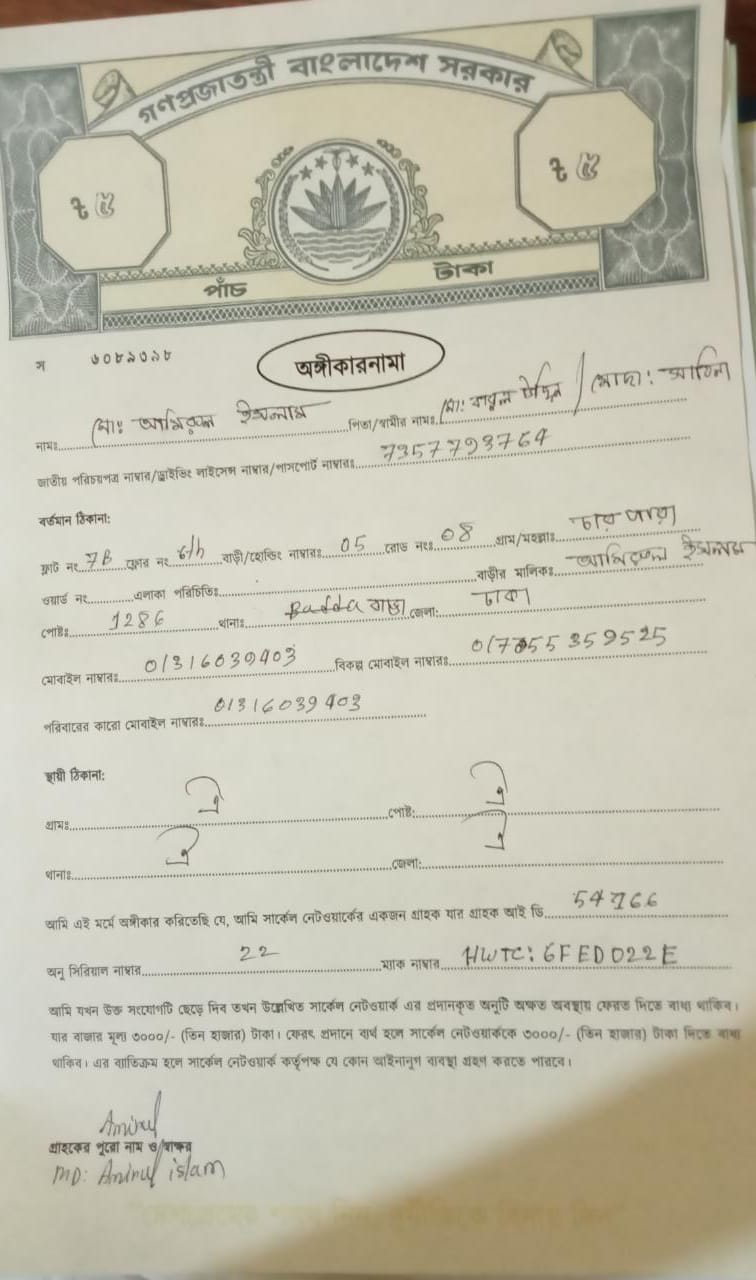 গণপ্রজাতন্ত্রী বাংলাদেশ সরকার
৳ ৫ ৳ ৫
পাঁচ টাকা
স ৬০৮৯৩৯৮
অঙ্গীকারনামা
নামঃ মোঃ আমিরুল ইসলাম পিতা/স্বামীর নামঃ মো: বাবুল উদ্দিন / মোছা: আমিনা
জাতীয় পরিচয়পত্র নাম্বার/ড্রাইভিং লাইসেন্স নাম্বার/পাসপোর্ট নাম্বারঃ 7357793764
বর্তমান ঠিকানা:
ফ্লাট নং 7B ফ্লোর নং 6th বাড়ী/হোল্ডিং নাম্বারঃ 05 রোড নংঃ 08 গ্রাম/মহল্লাঃ
ওয়ার্ড নং এলাকা পরিচিতিঃ বাড়ীর মালিকঃ আমিরুল ইসলাম
পোষ্টঃ 1286 থানাঃ Badda বাড্ডা জেলা: ঢাকা
মোবাইল নাম্বারঃ 01316039403 বিকল্প মোবাইল নাম্বারঃ
পরিবারের কারো মোবাইল নাম্বারঃ 01316039403
স্থায়ী ঠিকানা:
গ্রামঃ ঐ পোষ্ট: ঐ
থানাঃ ঐ জেলা: ঐ
আমি এই মর্মে অঙ্গীকার করিতেছি যে, আমি সার্কেল নেটওয়ার্কের একজন গ্রাহক যার গ্রাহক আই ডি 54766
অনু সিরিয়াল নাম্বার 22 ম্যাক নাম্বার HWTC: 6FED022E
আমি যখন উক্ত সংযোগটি ছেড়ে দিব তখন উল্লেখিত সার্কেল নেটওয়ার্ক এর প্রদানকৃত অনুটি অক্ষত অবস্থায় ফেরত দিতে বাধ্য থাকিব।
যার বাজার মূল্য ৩০০০/- (তিন হাজার) টাকা। ফেরৎ প্রদানে ব্যর্থ হলে সার্কেল নেটওয়ার্ককে ৩০০০/- (তিন হাজার) টাকা দিতে বাধ্য
থাকিব। এর ব্যতিক্রম হলে সার্কেল নেটওয়ার্ক কর্তৃপক্ষ যে কোন আইনানুগ ব্যবস্থা গ্রহণ করতে পারবে।
Amirul
গ্রাহকের পুরো নাম ও স্বাক্ষর
MD: Amirul islam